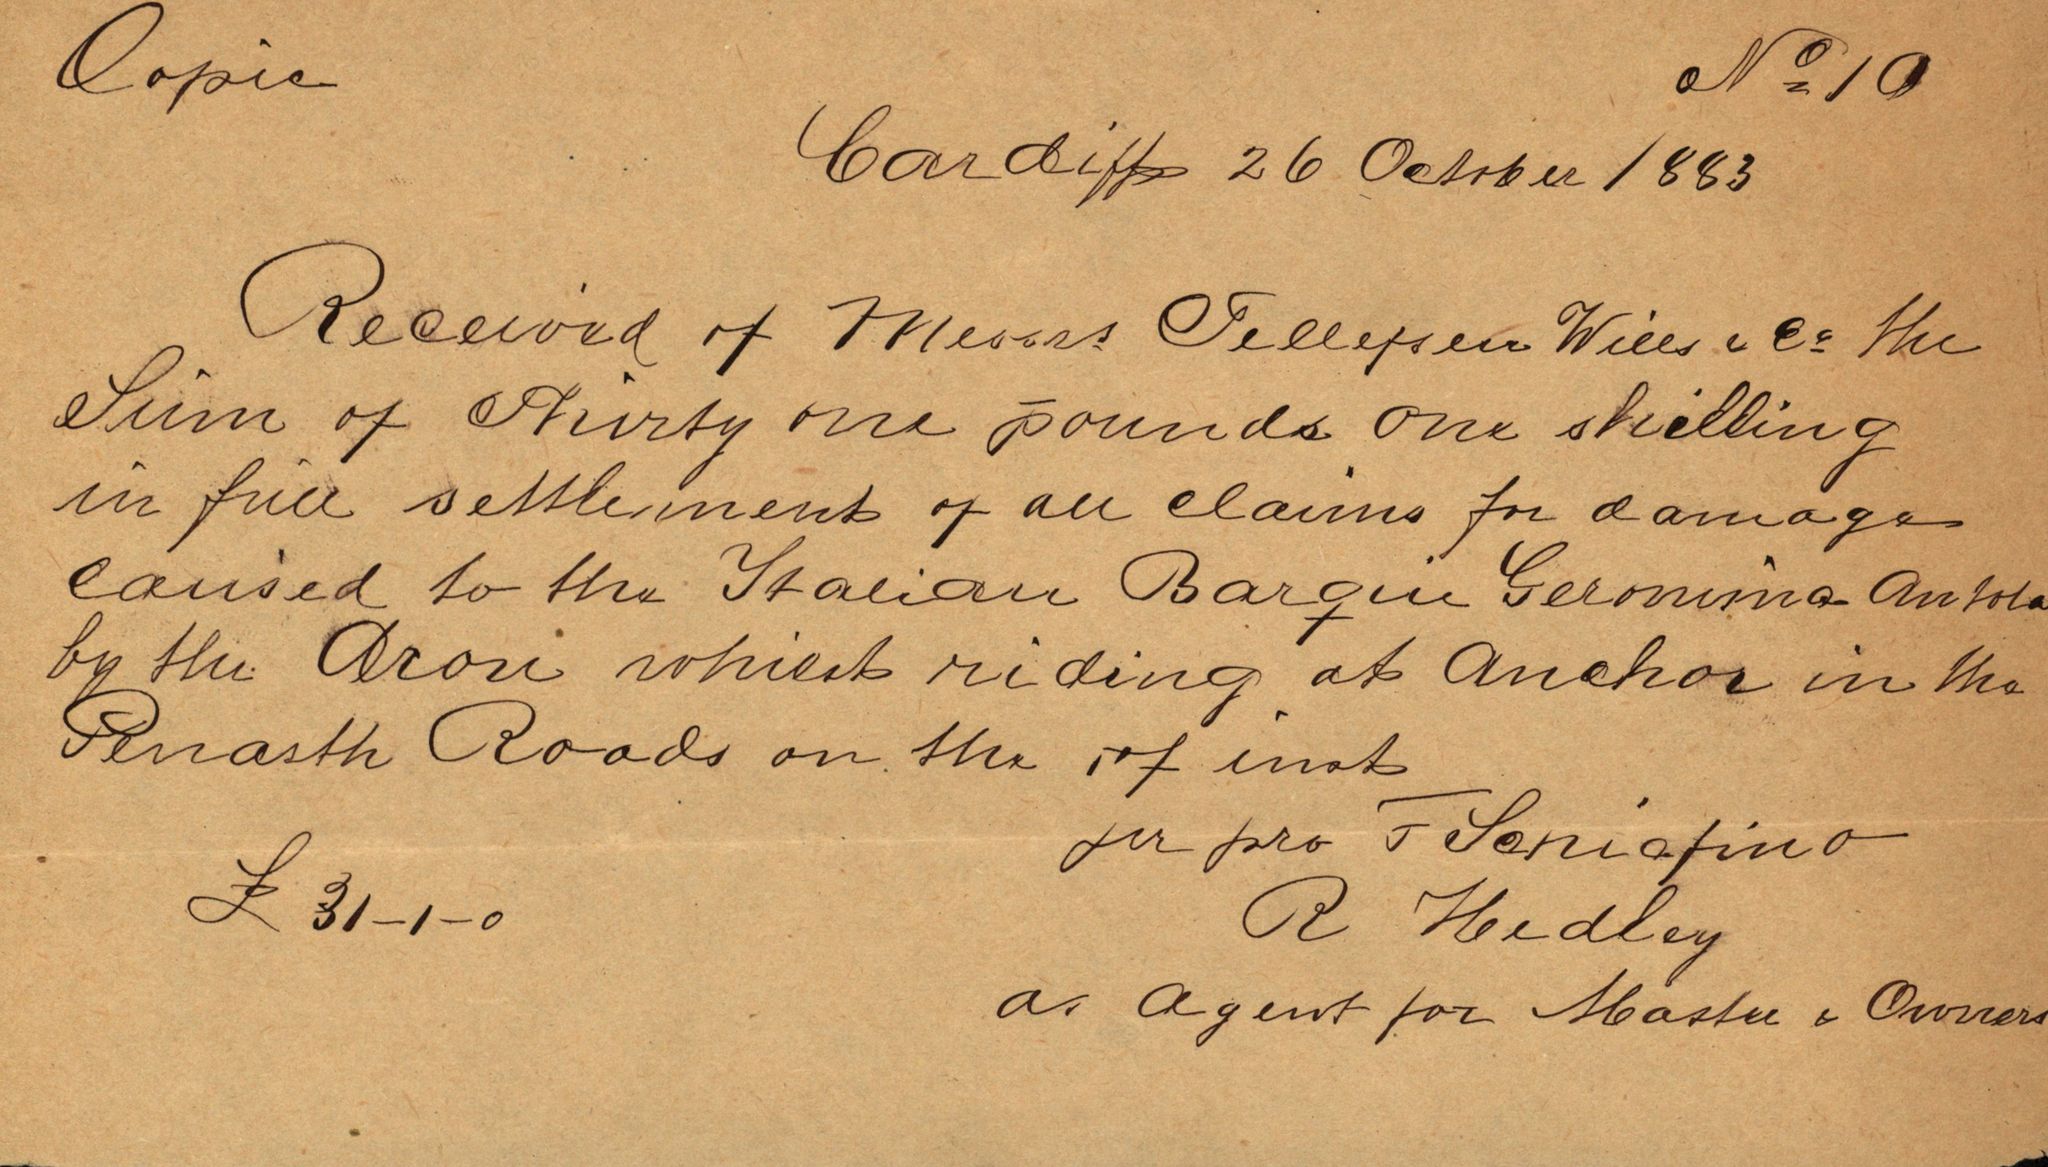 Copie
No 10
Cardiff 26 October 1883
Received of Messrs Tellefsen Wills & Co the
Sum of Thirty one pounds one shilling
in full settlement of all claims for damage
caused to the Italian Barque Geronima Antola
by the Aron whilst riding at Anchor in the
Penarth Roads on the of inst
per pro F Schiafino
R Hedley
£ 31-1-0
as Agent for Master & Owners